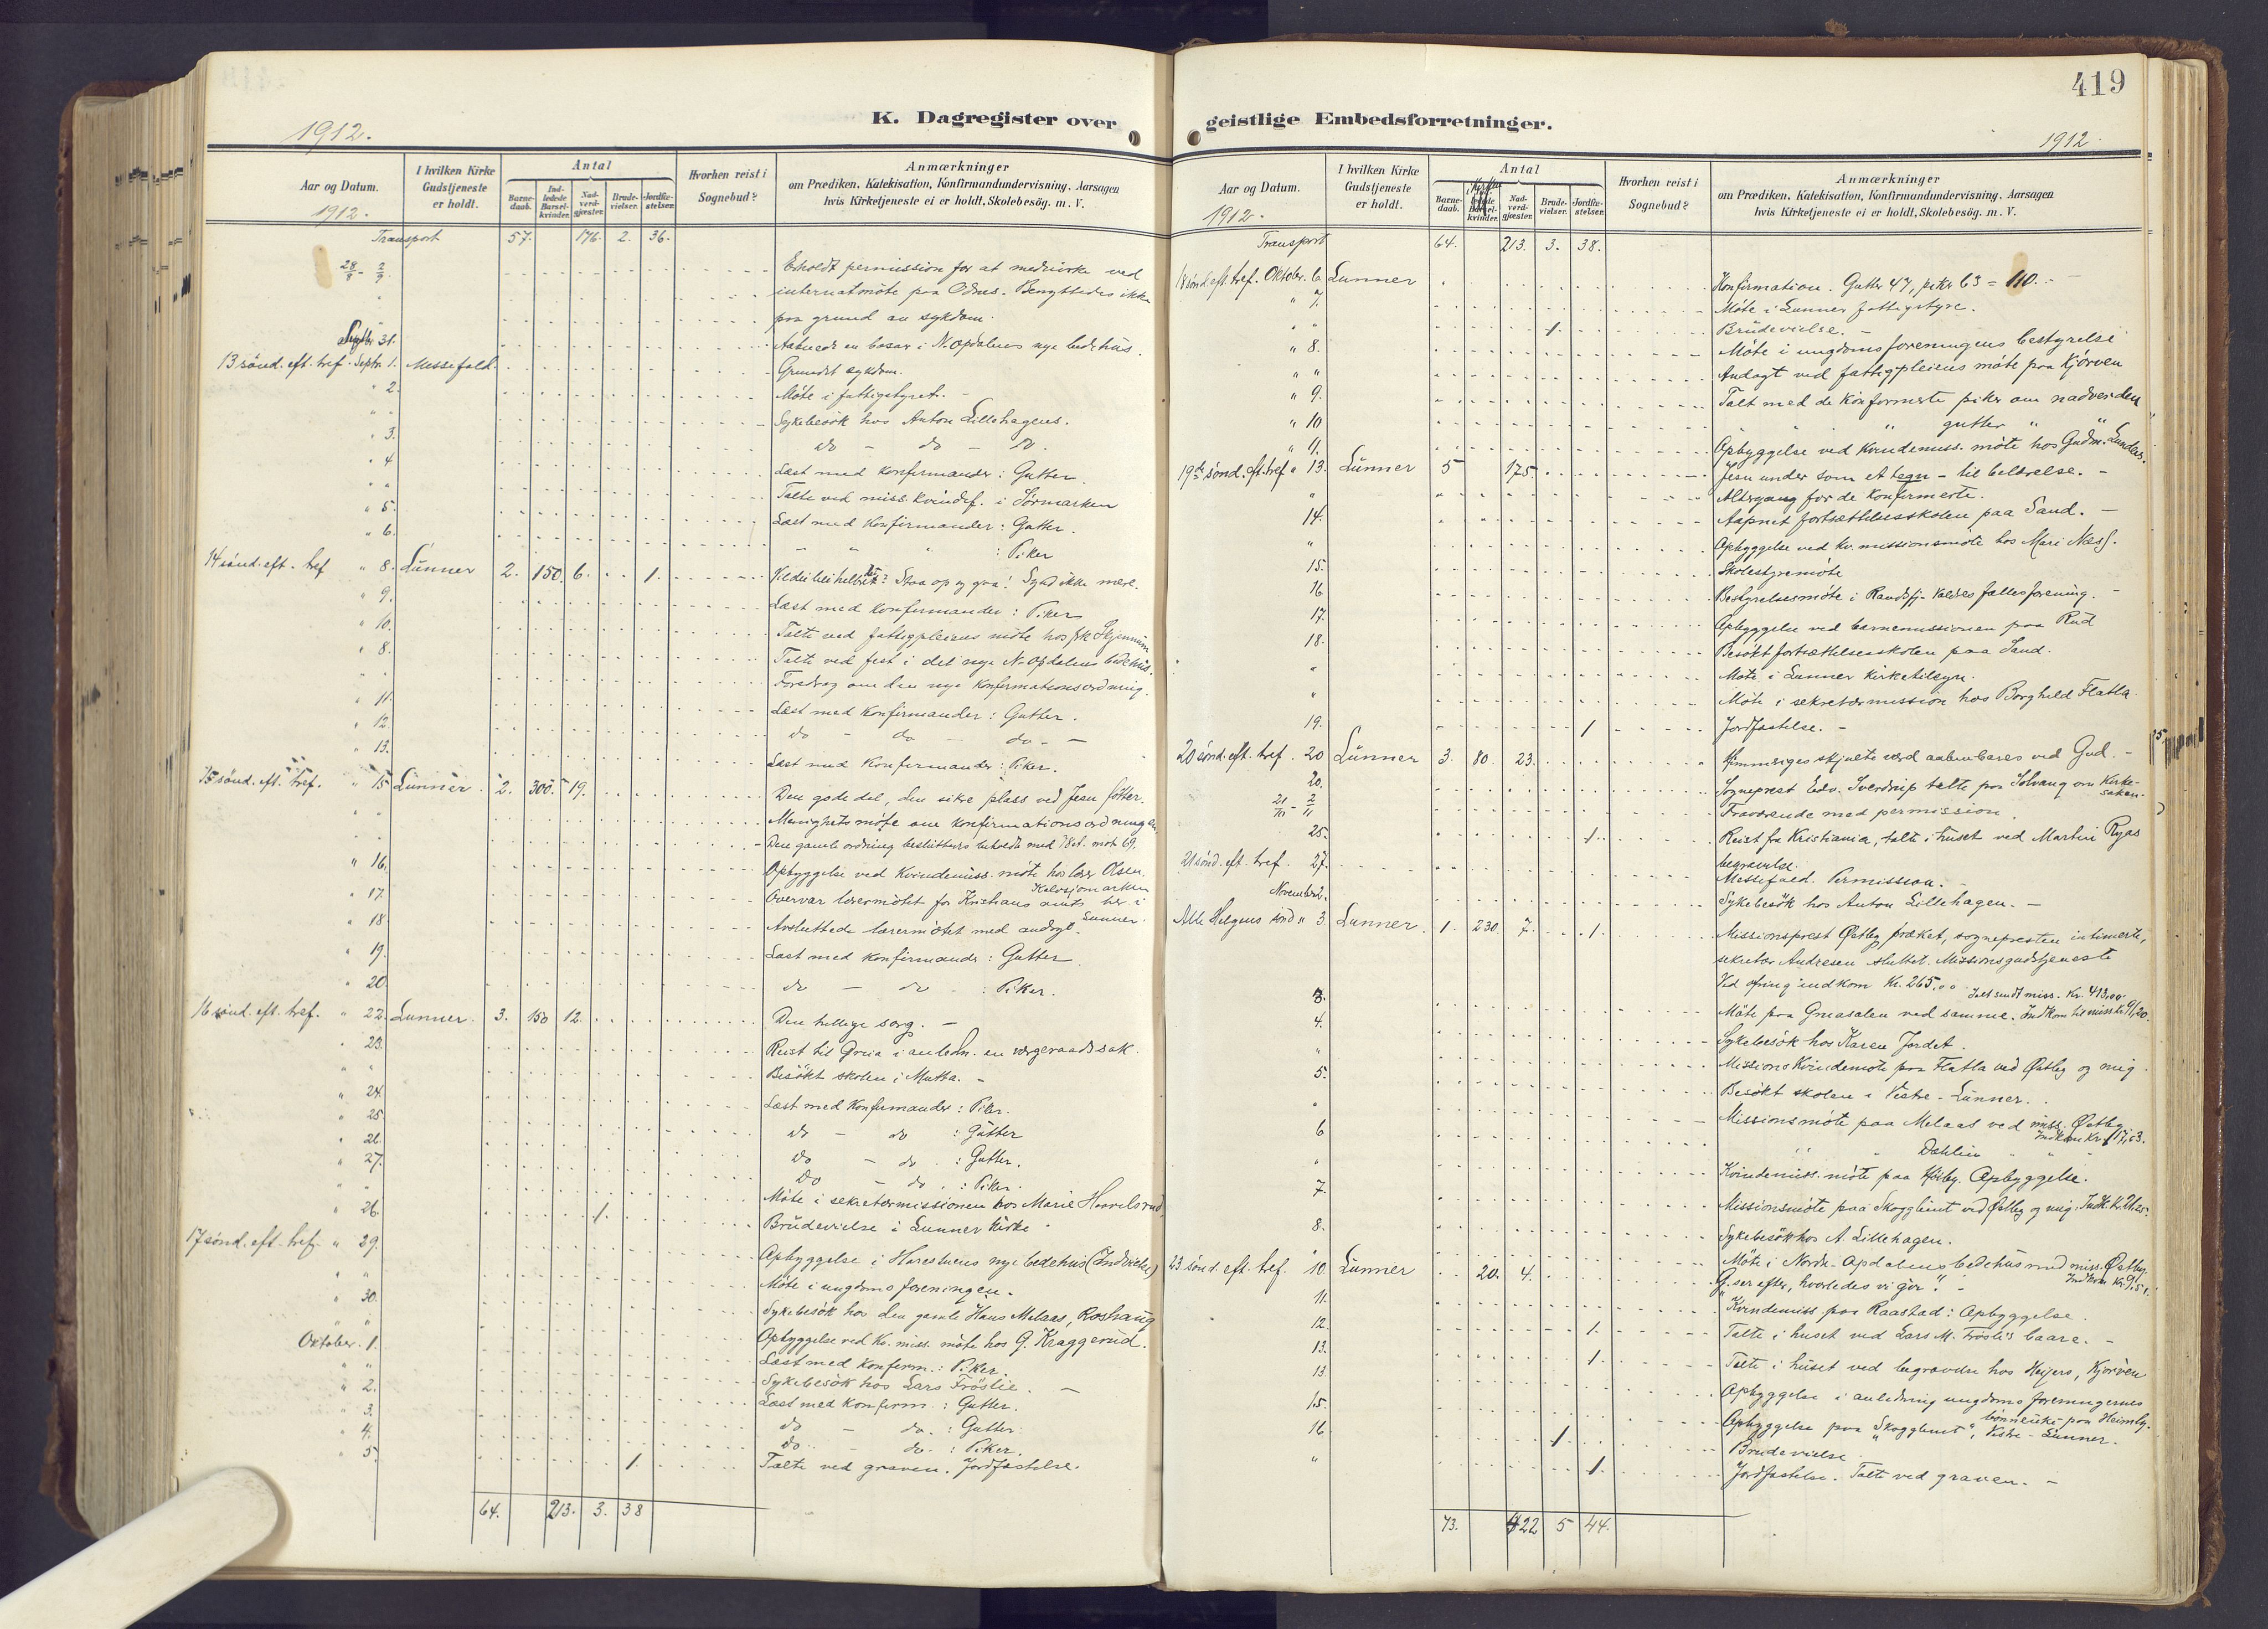 419
K. Dagregister over
1912.
Aar og Datum.
1912.
I hvilken Kirke Gudstjeneste er holdt.
Antal
Barnedaab.
Indledede Barselkvinder.
Nadverdgjæster.
Brudevielser.
Jordfæstelser.
Hvorhen reist i Sognebud?
Anmærkninger
om Prædiken, Katekisation, Konfirmandundervisning, Aarsagen
hvis Kirketjeneste ei er holdt, Skolebesög. m. V.
Transport 57. 176. 2. 36.
28/8 - 2/9. Erholdt permission for at medvirke ved
internatmöte paa Odnes. Benyttedes ikke
paa grund av sykdom.
31. Aabnede en basar i N. Opdalens nye bedehus.
13 sönd. eft. tref. Septr. 1. Messefald. Grundet sykdom.
" 2. Möte i fattigstyret. -
" " Sykebesök hos Anton Lillehagens.
" 3. do - do - do.
" 4. Læst med konfirmander: Gutter.
" " Talte ved miss. kvindef. i Sörmarken
" 5. Læst med konfirmander: Gutter.
" 6. " " " : Piker
14 sönd. eft. tref " 8. Lunner 2. 150. 6. 1. Vil du bli helbredet? Staa op og gaa! Synd ikke mere.
" 9. Læst med konfirmander: Piker
" 10. Talte ved fattigpleiens möte hos frk
" 8. Talte ved fest i det nye N. Opdalens bedehus.
" " Foredrag om den nye konfirmationsordning.
" 11. Læst med konfirmander: Gutter.
" 12. do - do - do. -
" 13. Læst med konfirmander: Piker.
15 sönd. eft. tref. " 15 Lunner. 2. 300. 19. Den gode del, den sikre plass ved Jesu fötter.
" Menighetsmöte om konfirmationsordningen
" Den gamle ordning besluttedes beholdt med 78 st. mot 69.
" 16. Opbyggelse ved Kvindemiss. möte hos lærer Olsen,
Kalvsjömarken
" 17. Overvar lærermötet for Kristians amts her i
Lunner.
" 18. Avsluttede lærermötet med andagt.
" 19. Læst med konfirmander: Gutter.
" 20. do - do : Piker.
16 sönd. eft. tref. " 22. Lunner. 3. 150 12. Den hellige sorg. -
" 23. Reist til Grua i anledn. en værgeraadssak.
" " Besökt skolen i Mutta. -
" 24. Læst med konfirmander: Piker.
" 25 do - do : Gutter
" 26. do - do : Gutter.
" 27. do - do. : Piker.
" " Möte i sekretærmissionen hos Marie Hovelsrud.
" 26. 1. Brudevielse i Lunner kirke.
17 sönd. eft. tref. " 29. Opbyggelse i Harestuens nye bedehus (Indvielse)
" " Möte i ungdomsforeningen.
" 30. Sykebesök hos den gamle Hans Melaas, Roshaug
" " Opbyggelse ved Kv. miss. möte hos G. Kraggerud.
Oktober. 1. Læst med konfirm.: Piker
" " Sykebesök hos Lars Fröslie. -
" 2. Læst med konfirm.: Gutter.
" 3. do - do. : Gutter.
" 4. do - do. : Piker.
" 5. 1. Talte ved graven. Jordfæstelse.
64. 213. 3. 38
geistlige Embedsforretninger.
1912.
Aar og Datum.
1912.
I hvilken Kirke Gudstjeneste er holdt.
Antal
Barnedaab.
Nadverdgjæster.
Brudevielser.
Jordfæstelser.
Hvorhen reist i Sognebud?
Anmærkninger
om Prædiken, Katekisation, Konfirmandundervisning, Aarsagen
hvis Kirketjeneste ei er holdt, Skolebesög. m. V.
Transport 64. 213. 3. 38.
18 sönd. eft. tref. Oktober. 6. Lunner Konfirmation. Gutter 47, piker 63 = 110. -
" 7. Möte i Lunner fattigstyre.
" " 1. Brudevielse. -
" 8. Möte i ungdomsforeningens bestyrelse
" " Andagt ved fattigpleiens möte paa Kjörven
" 9. Talt med de konfirmerte piker om nadverden
" 10 " " gutter " "
" 11. Opbyggelse ved Kvindemiss. möte hos Gudm. Lunder.
19de sönd. eft. tref. " 13. Lunner 5 175. Jesu under som et tegn - til belærelse. -
" Altergang for de konfirmerte.
14. Aapnet fortsættelsesskolen paa Sand. -
" Opbyggelse ved kv. missionsmöte hos Mari Næss.
15. Skolestyremöte
16 Bestyrelsesmöte i Randsfj.-Valdres fællesforening. -
17. Opbyggelse ved barnemissionen paa Rud
18. Besökt fortsættelsesskolen paa Sand.
" Möte i Lunner kirketilsyn.
" Möte i sekretærmission hos Borghild Flatla
19. 1 Jordfæstelse. -
20 sönd. eft. tref. 20 Lunner 3. 80. 23. Himmeriges skjulte værd aabenbares ved Gud. -
20. Sogneprest Edv. Sverdrup talte paa Solvang om Kirke-
saken.
21/10 - 2/11 Fraværende med permission.
25. 1. Reist fra Kristiania, talte i huset ved Martin Ryas
begravelse.
21 sönd. eft. tref. 27. Messefald. Permission. -
November 2. Sykebesök hos Anton Lillehagen. -
Alle Helgens sönd " 3 Lunner. 1. 230. 7. 1. Missionsprest Östby præket, sognepresten intimerte,
sekretær Andresen sluttet. Missionsgudstjeneste
Ved ofring indkom Kr. 265,00 Ialt sendt miss. Kr. 413,00
3. Möte paa Gruasalen ved samme.
4. Sykebesök hos Karen Jordet.
" Missions Kvindemöte paa Flatla ved Östby og mig.
5. Besökt skolen i Vestre-Lunner.
" Missionsmöte paa Melaas ved miss. Östby
6 " " Dæhlin " "
" Kvindemiss. möte paa Höiby. Opbyggelse.
7. Missionsmöte paa Skogglimt ved Östby og mig.
8. Sykebesök hos A. Lillehagen.
" Möte i Nordr. Opdalens bedehus med miss. Östby.
23 sönd. eft. tref. 10. Lunner 20. 4. "G. ser efter, hvorledes vi gir". -
11. Kvindemiss. paa Raastad: Opbyggelse.
12. 1. Talte i huset ved Lars M. Fröslis baare. -
13. 1. Talte i huset ved begravelse hos Heyers, Kjörven
13. Opbyggelse i anledning ungdomsforeningernes
bönneuke paa Heimby.
15. Opbyggelse paa "Skogglimt", Vestre-Lunner.
16 1. Brudevielse
" 1. Jordfæstelse. Talte ved graven. -
73. 422 5 44.